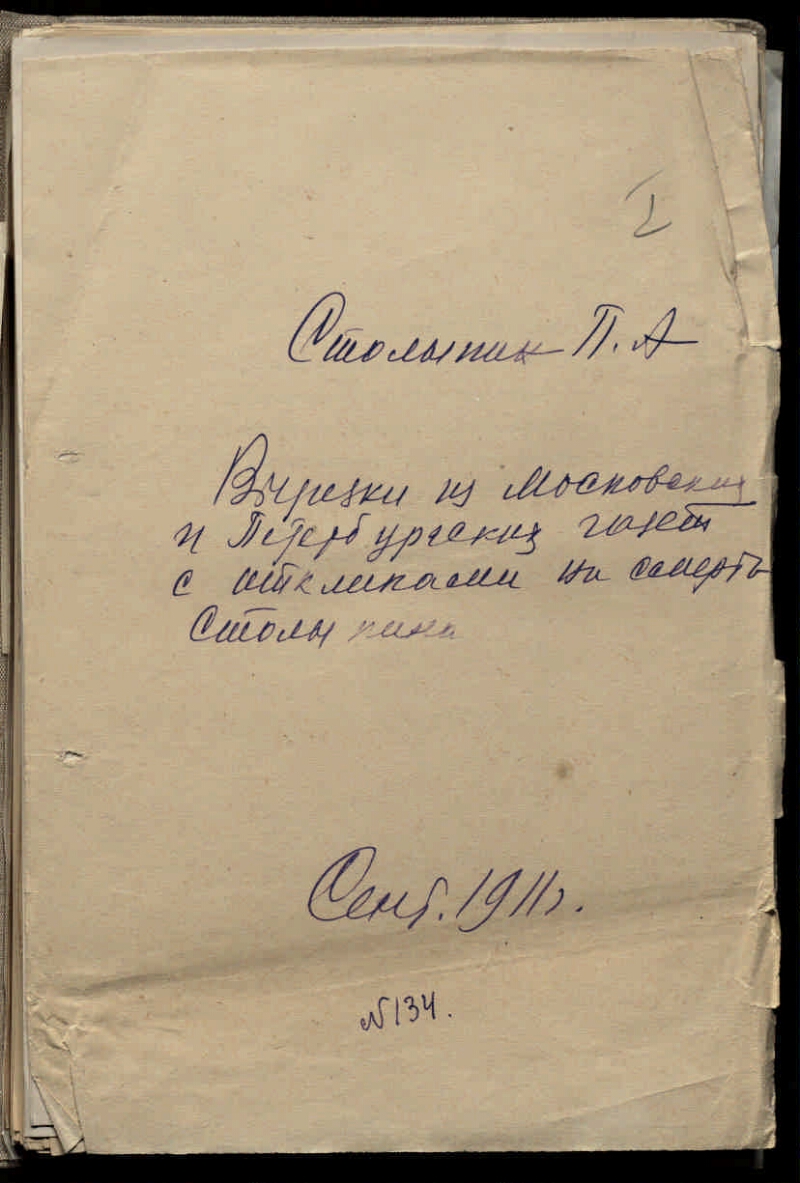 I
Столыпин П. А
Вырезки из Московских
и Петербургских газет
с откликами на смерть
Столыпина
Сент. 1911г.
№134.